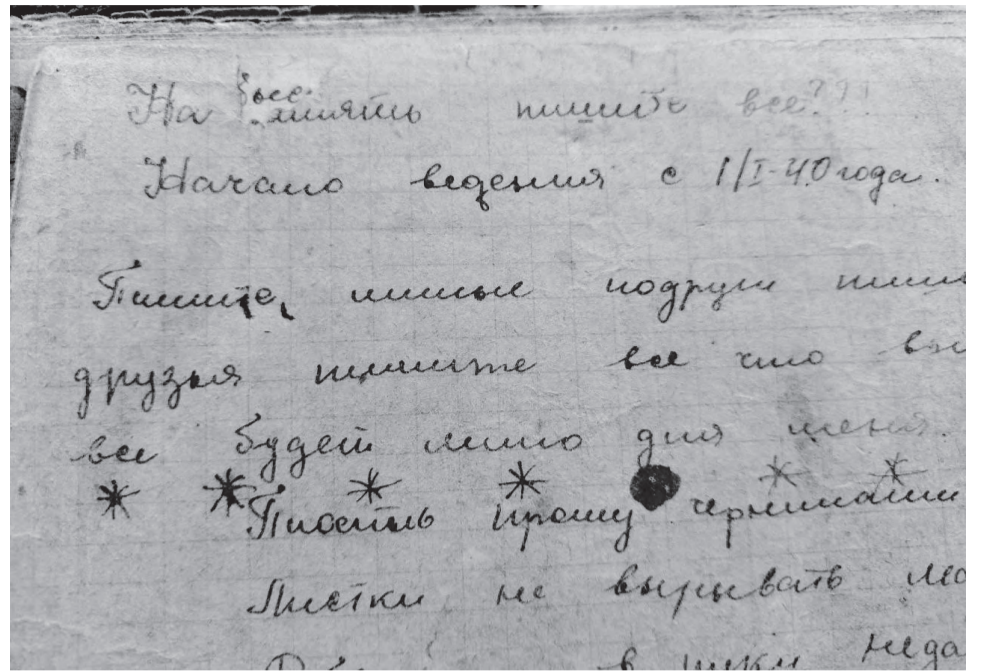 На память пишите все???
Начало ведения с 1/I-40 года.
Пишите, милые подруги
друзья пишите все что
все будет мило для меня.
прошу чернилами
Листки не вырывать
в